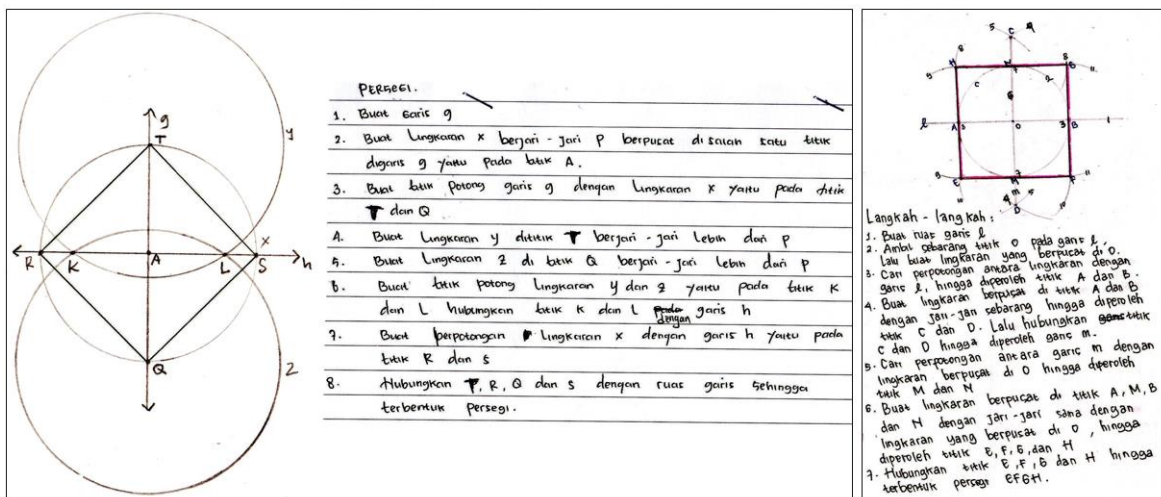 g
T
y
X
R
K
A
L
S
h
Q
Z
PERSEGI.
1. Buat garis g
2. Buat Lingkaran x berjari-jari p berpusat di salah satu titik
digaris g yaitu pada titik A.
3. Buat titik potong garis g dengan lingkaran x yaitu pada titik
T dan Q
4. Buat Lingkaran y dititik T berjari-jari lebih dari p
5. Buat Lingkaran z di titik Q berjari-jari lebih dari p
6. Buat titik potong lingkaran y dan z yaitu pada titik K
dan L hubungkan titik K dan L dengan garis h
7. Buat perpotongan lingkaran x dengan garis h yaitu pada
titik R dan S
8. Hubungkan T, R, Q dan S dengan ruas garis sehingga
terbentuk persegi.
5 C 4
H N 8
l A O B
E M F
m
D
Langkah-langkah:
1. Buat ruas garis l
2. Ambil sebarang titik O pada garis l.
Lalu buat lingkaran yang berpusat di O.
3. Cari perpotongan antara lingkaran dengan
garis l, hingga diperoleh titik A dan B.
4. Buat lingkaran berpusat di titik A dan B
dengan jari-jari sebarang hingga diperoleh
titik C dan D. Lalu hubungkan titik
C dan D hingga diperoleh garis m.
5. Cari perpotongan antara garis m dengan
lingkaran berpusat di O hingga diperoleh
titik M dan N
6. Buat lingkaran berpusat di titik A, M, B
dan N dengan jari-jari sama dengan
lingkaran yang berpusat di O, hingga
diperoleh titik E, F, G, dan H
7. Hubungkan titik E, F, G dan H hingga
terbentuk persegi EFGH.